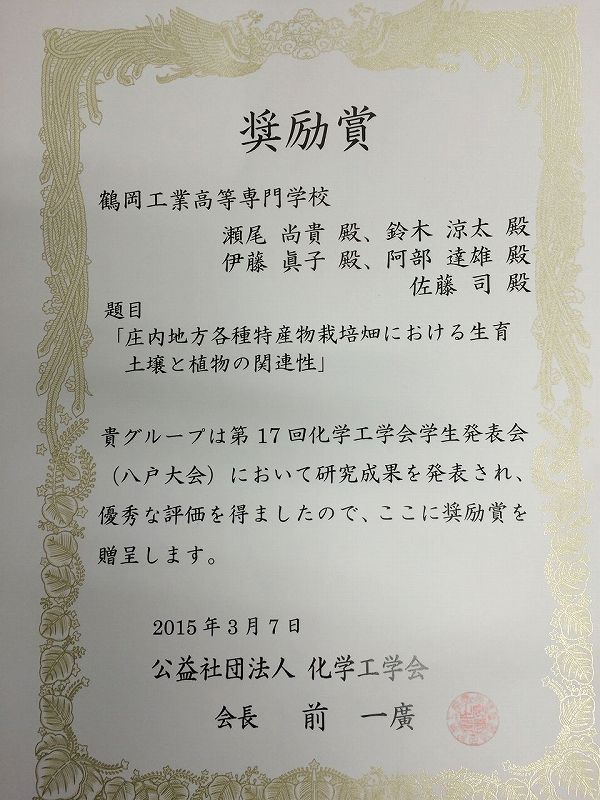 奨励賞
鶴岡工業高等専門学校
瀬尾 尚貴 殿、鈴木 涼太 殿
伊藤 眞子 殿、阿部 達雄 殿
佐藤 司 殿
題目
「庄内地方各種特産物栽培畑における生育
土壌と植物の関連性」
貴グループは第 17 回化学工学会学生発表会
（八戸大会）において研究成果を発表され、
優秀な評価を得ましたので、ここに奨励賞を
贈呈します。
2015 年 3 月 7 日
公益社団法人 化学工学会
会長 前 一廣